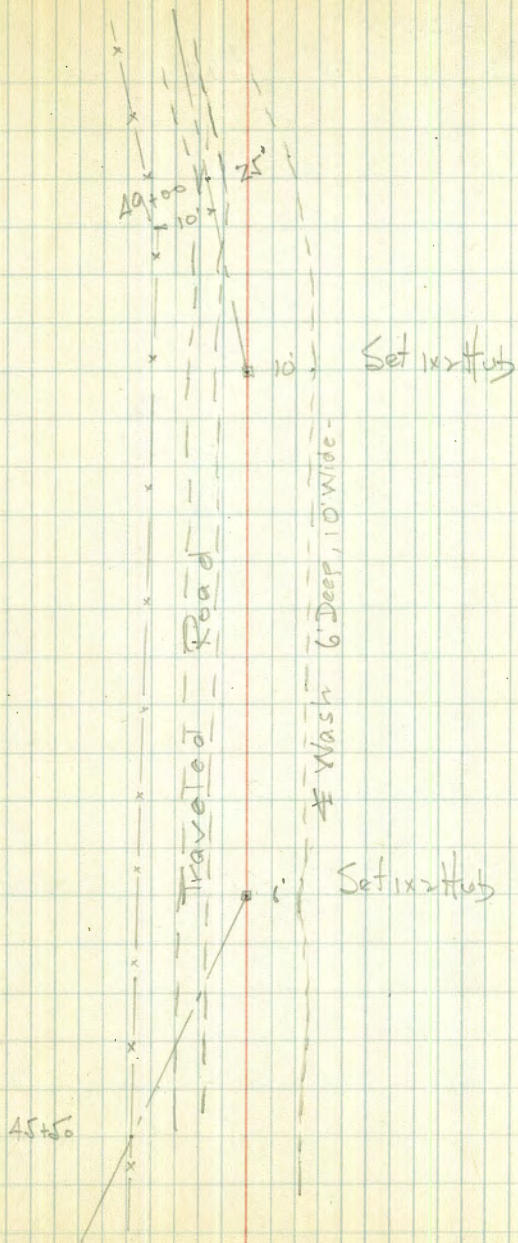 49+00
10'
25'
10'
Set 1x2 Hub
Traveled Road
℄ Wash 6' Deep, 10' Wide-
6'
Set 1x2 Hub
45+50